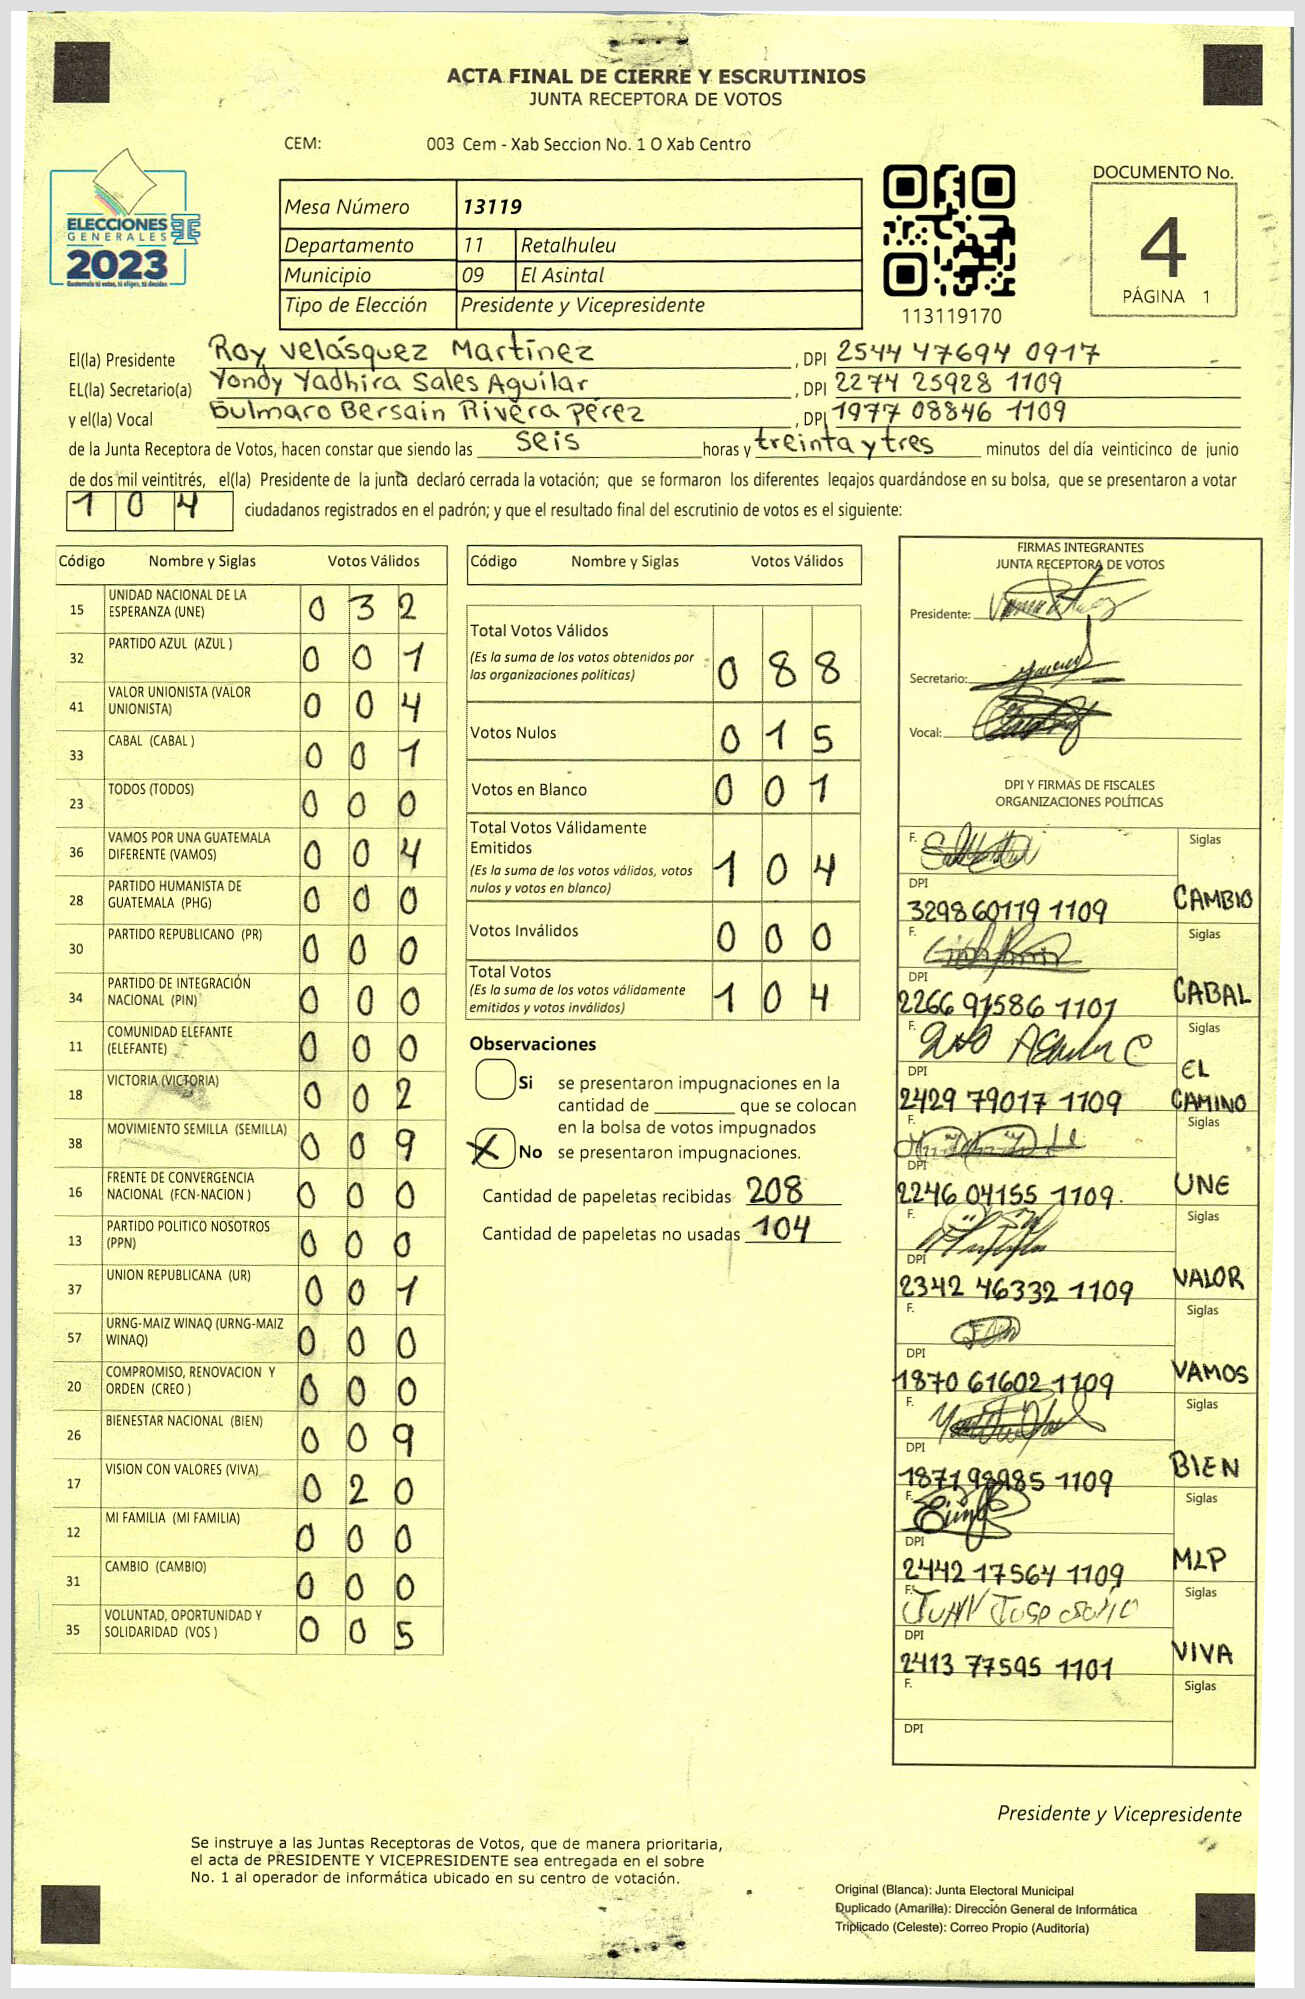 ACTA FINAL DE CIERRE Y ESCRUTINIOS
JUNTA RECEPTORA DE VOTOS
CEM: 003 Cem - Xab Seccion No. 1 O Xab Centro
ELECCIONES
GENERALES
2023
Guatemala tú votas, tú eliges, tú decides
Mesa Número 13119
Departamento 11 Retalhuleu
Municipio 09 El Asintal
Tipo de Elección Presidente y Vicepresidente
113119170
DOCUMENTO No.
4
PÁGINA 1
El(la) Presidente Roy Velásquez Martínez, DPI 2544 47694 0917
EL(la) Secretario(a) Yondy Yadhira Sales Aguilar, DPI 2274 25928 1109
y el(la) Vocal Bulmaro Bersain Rivera Pérez, DPI 1977 08846 1109
de la Junta Receptora de Votos, hacen constar que siendo las seis horas y treinta y tres minutos del día veinticinco de junio
de dos mil veintitrés, el(la) Presidente de la junta declaró cerrada la votación; que se formaron los diferentes legajos guardándose en su bolsa, que se presentaron a votar
104 ciudadanos registrados en el padrón; y que el resultado final del escrutinio de votos es el siguiente:
Código Nombre y Siglas Votos Válidos
15 UNIDAD NACIONAL DE LA ESPERANZA (UNE) 032
32 PARTIDO AZUL (AZUL ) 001
41 VALOR UNIONISTA (VALOR UNIONISTA) 004
33 CABAL (CABAL ) 001
23 TODOS (TODOS) 000
36 VAMOS POR UNA GUATEMALA DIFERENTE (VAMOS) 004
28 PARTIDO HUMANISTA DE GUATEMALA (PHG) 000
30 PARTIDO REPUBLICANO (PR) 000
34 PARTIDO DE INTEGRACIÓN NACIONAL (PIN) 000
11 COMUNIDAD ELEFANTE (ELEFANTE) 000
18 VICTORIA (VICTORIA) 002
38 MOVIMIENTO SEMILLA (SEMILLA) 009
16 FRENTE DE CONVERGENCIA NACIONAL (FCN-NACION ) 000
13 PARTIDO POLITICO NOSOTROS (PPN) 000
37 UNION REPUBLICANA (UR) 001
57 URNG-MAIZ WINAQ (URNG-MAIZ WINAQ) 000
20 COMPROMISO, RENOVACION Y ORDEN (CREO ) 000
26 BIENESTAR NACIONAL (BIEN) 009
17 VISION CON VALORES (VIVA) 020
12 MI FAMILIA (MI FAMILIA) 000
31 CAMBIO (CAMBIO) 000
35 VOLUNTAD, OPORTUNIDAD Y SOLIDARIDAD (VOS ) 005
Código Nombre y Siglas Votos Válidos
Total Votos Válidos 088
(Es la suma de los votos obtenidos por
las organizaciones políticas)
Votos Nulos 015
Votos en Blanco 001
Total Votos Válidamente
Emitidos 104
(Es la suma de los votos válidos, votos
nulos y votos en blanco)
Votos Inválidos 000
Total Votos 104
(Es la suma de los votos válidamente
emitidos y votos inválidos)
Observaciones
Si se presentaron impugnaciones en la
cantidad de ________ que se colocan
en la bolsa de votos impugnados
X No se presentaron impugnaciones.
Cantidad de papeletas recibidas 208
Cantidad de papeletas no usadas 104
FIRMAS INTEGRANTES
JUNTA RECEPTORA DE VOTOS
Presidente:
Secretario:
Vocal:
DPI Y FIRMAS DE FISCALES
ORGANIZACIONES POLÍTICAS
F. Siglas
DPI CAMBIO
3298 60119 1109
F. Siglas
DPI CABAL
2266 91586 1101
F. Siglas
DPI EL CAMINO
2429 79017 1109
F. Siglas
DPI UNE
2246 04155 1109
F. Siglas
DPI VALOR
2342 46332 1109
F. Siglas
DPI VAMOS
1870 61602 1109
F. Siglas
DPI BIEN
1871 98985 1109
F. Siglas
DPI MLP
2442 17564 1109
F. JUAN Siglas
DPI VIVA
2413 77595 1101
F. Siglas
DPI
Presidente y Vicepresidente
Se instruye a las Juntas Receptoras de Votos, que de manera prioritaria,
el acta de PRESIDENTE Y VICEPRESIDENTE sea entregada en el sobre
No. 1 al operador de informática ubicado en su centro de votación.
Original (Blanca): Junta Electoral Municipal
Duplicado (Amarilla): Dirección General de Informática
Triplicado (Celeste): Correo Propio (Auditoría)